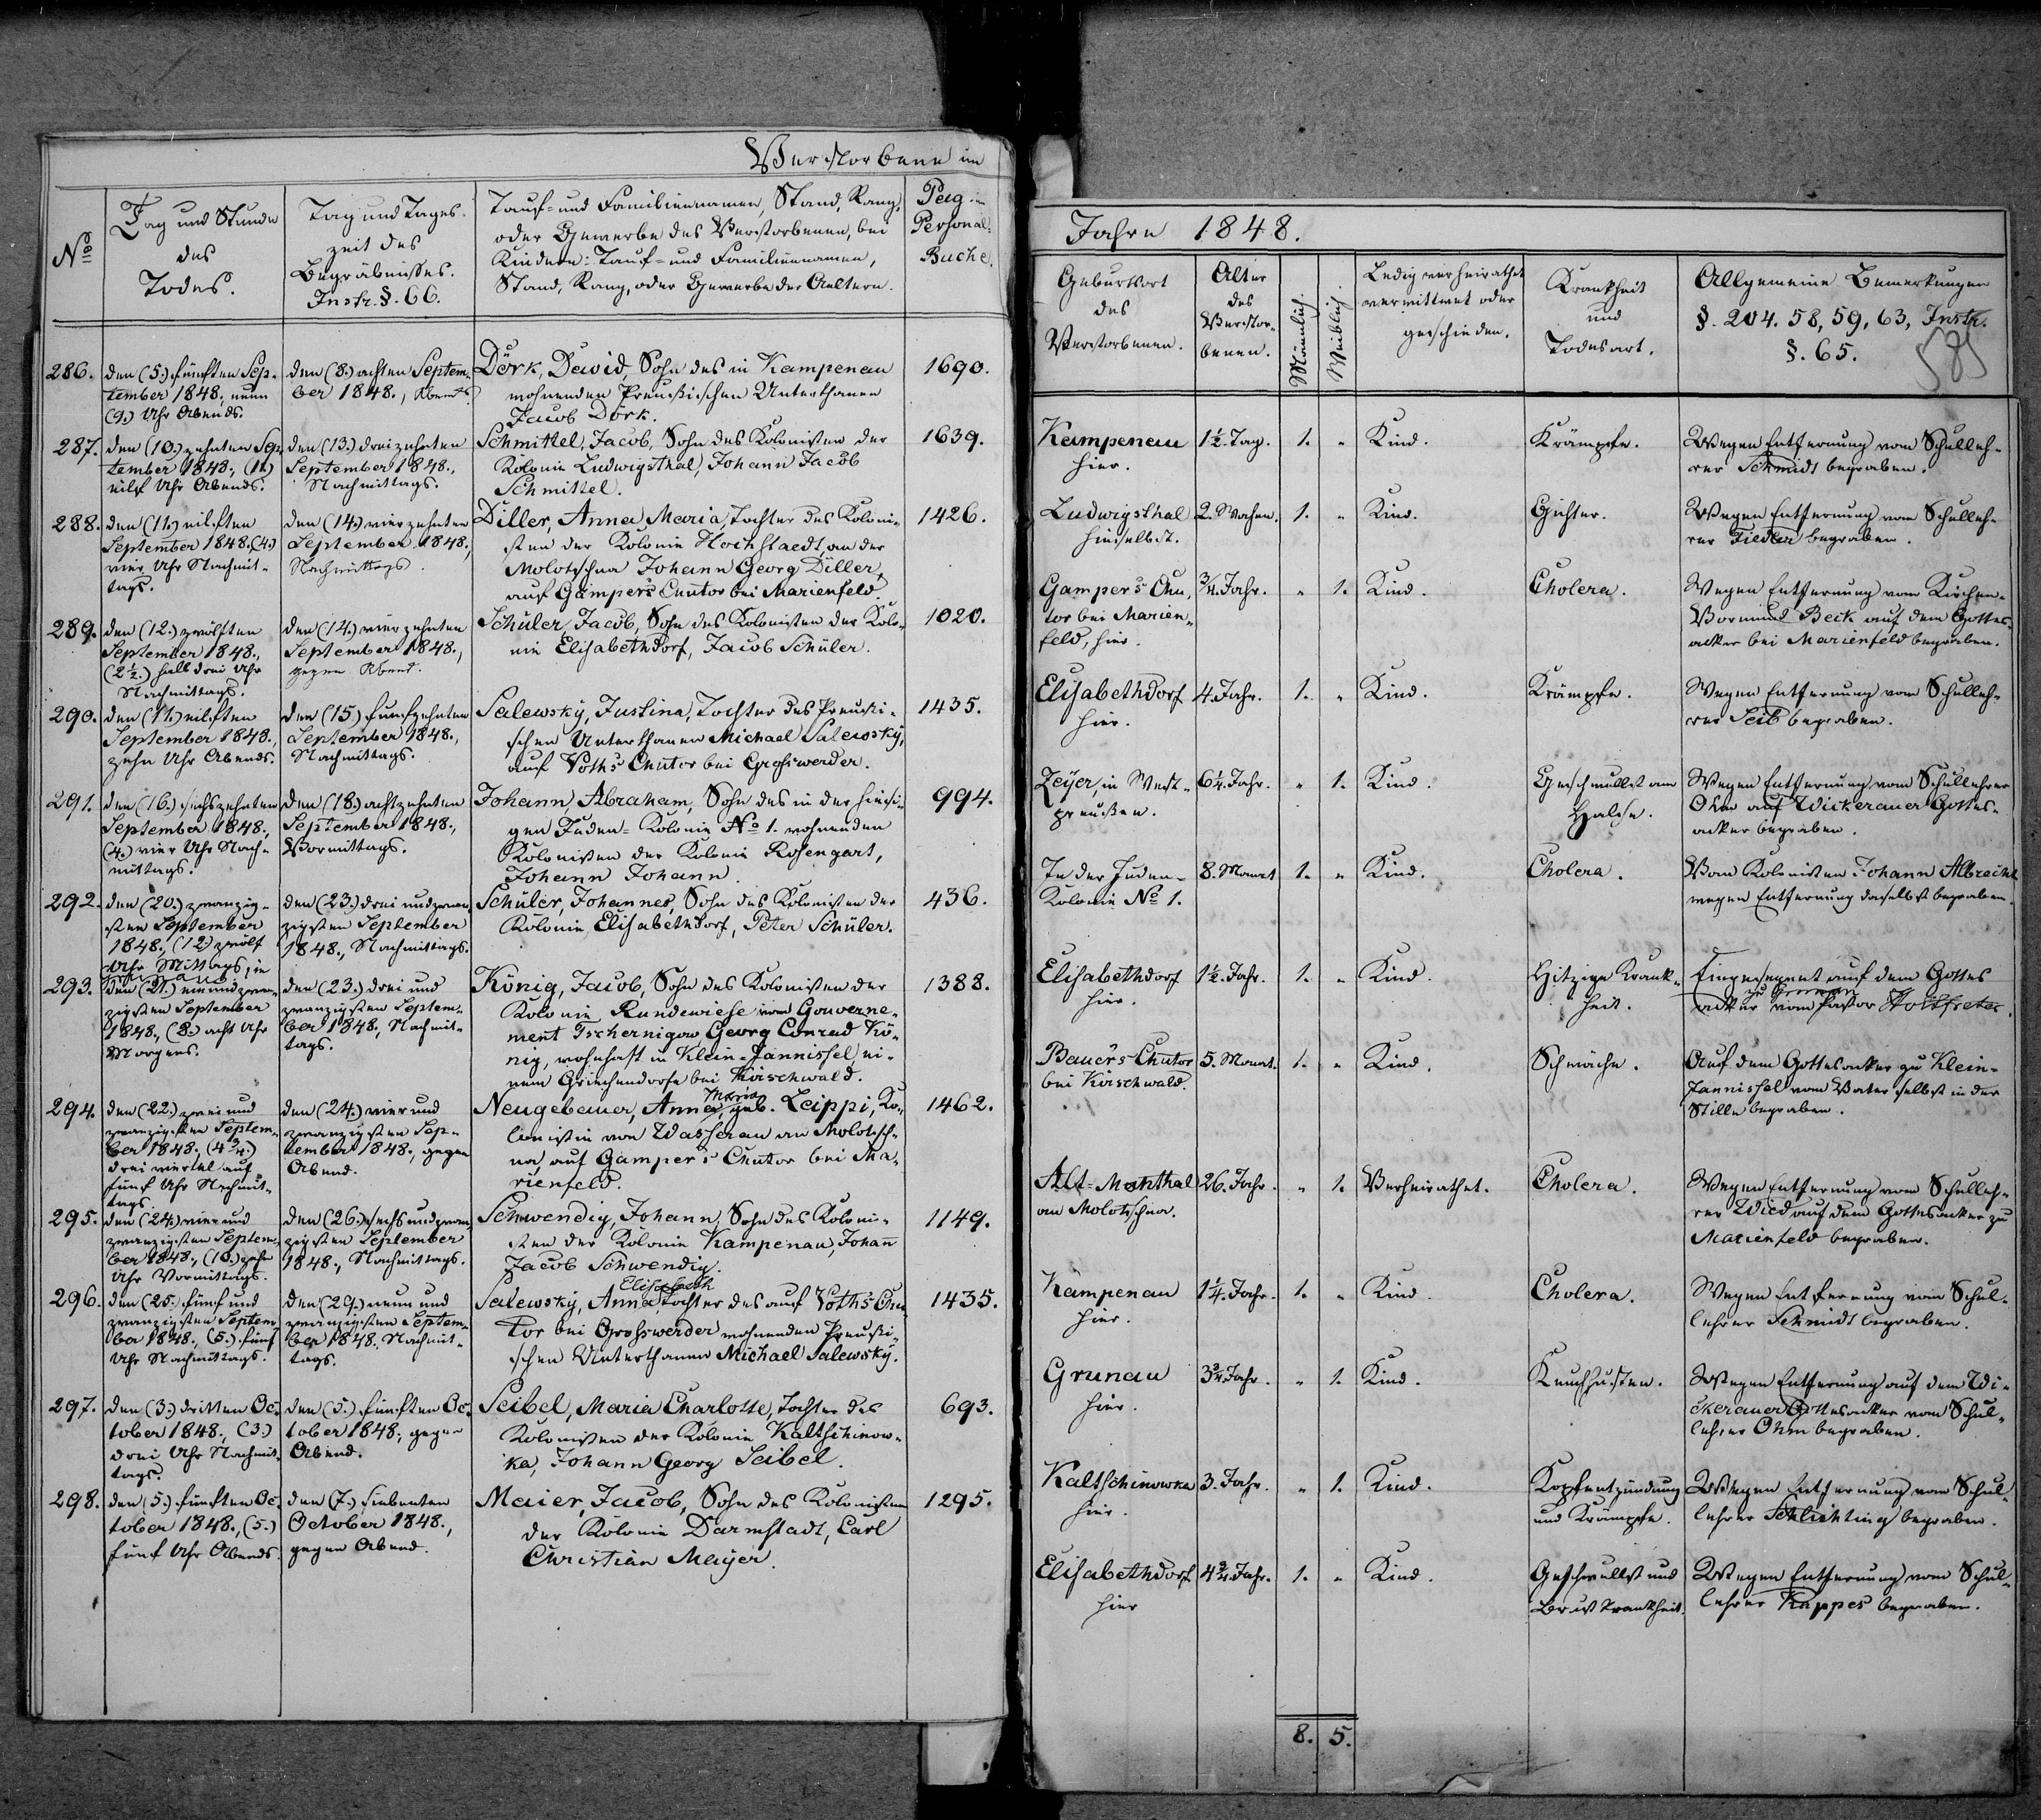 Verstorbene im
No
Tag und Stunde
des
Todes.
Tag und Tages-
zeit des
Begräbnisses.
Instr. §. 66.
Tauf- und Familiennamen, Stand, Rang,
oder Gewerbe des Verstorbenen, bei
Kindern: Tauf- und Familiennamen,
Stand, Rang, oder Gewerbe der Aeltern.
Pag. im
Personal-
Buche.
286.
den (5.) fünften Sep-
tember 1848., neun
(9.) Uhr Abends.
den (8.) achten Septem-
ber 1848., Abends.
Dörk, David, Sohn des in Kampenau
wohnenden Preußischen Unterthanen
Jacob Dörk.
1690.
287.
den (10.) zehnten Sep-
tember 1848., (11.)
eilf Uhr Abends.
den (13.) dreizehnten
September 1848.,
Nachmittags.
Schmittel, Jacob, Sohn des Kolonisten der
Kolonie Ludwigsthal, Johann Jacob
Schmittel.
1639.
288.
den (11.) eilften
September 1848., (4.)
vier Uhr Nachmit-
tags.
den (14.) vierzehnten
September 1848.,
Nachmittags.
Diller, Anna Maria, Tochter des Koloni-
sten der Kolonie Hochstaedt, an der
Molotschna Johann Georg Diller,
auf Gamper's Chutor bei Marienfeld.
1426.
289.
den (12.) zwölften
September 1848.,
(2½.) halb drei Uhr
Nachmittags.
den (14.) vierzehnten
September 1848.,
gegen Abend.
Schüler, Jacob, Sohn des Kolonisten der Kolo-
nie Elisabethdorf, Jacob Schüler.
1020.
290.
den (11.) eilften
September 1848.,
zehn Uhr Abends.
den (15.) fünfzehnten
September 1848.,
Nachmittags.
Salewsky, Justina, Tochter des Preußi-
schen Unterthanen Michael Salewsky,
auf Voth's Chutor bei Grosswerder.
1435.
291.
den (16.) sechszehnten
September 1848.,
(4.) vier Uhr Nach-
mittags.
den (18.) achtzehnten
September 1848.,
Vormittags.
Johann, Abraham, Sohn des in der hiesi-
gen Juden-Kolonie No 1. wohnenden
Kolonisten der Kolonie Rosengart,
Johann Johann.
994.
292.
den (20.) zwanzig-
sten September
1848., (12.) zwölf
Uhr Mittags, in
den (23.) drei und zwan-
zigsten September
1848., Nachmittags.
Schüler, Johannes, Sohn des Kolonisten der
Kolonie Elisabethdorf, Peter Schüler.
436.
293.
den (21.) ein und zwan-
zigsten September
1848., (8.) acht Uhr
Morgens.
den (23.) drei und
zwanzigsten Septem-
ber 1848., Nachmit-
tags.
König, Jacob, Sohn des Kolonisten der
Kolonie Rundewiese im Gouverne-
ment Tschernigow Georg Conrad Kö-
nig, wohnhaft in Klein-Jannissel, ei-
nem Griechendorfe bei Kirschwald.
1388.
294.
den (22.) zwei und
zwanzigsten Septem-
ber 1848., (4¾.)
drei viertel auf
fünf Uhr Nachmit-
tags.
den (24.) vier und
zwanzigsten Sep-
tember 1848., gegen
Abend.
Maria
Neugebauer, Anna, geb. Leippi, Ko-
lonistin von Wasserau an Molotsch-
na, auf Gamper's Chutor bei Ma-
rienfeld.
1462.
295.
den (24.) vier und
zwanzigsten Septem-
ber 1848., (10.) zehn
Uhr Vormittags.
den (26.) sechs und zwan-
zigsten September
1848., Nachmittags.
Schwendig, Johann, Sohn des Koloni-
sten der Kolonie Kampenau, Johann
Jacob Schwendig.
1149.
296.
den (25.) fünf und
zwanzigsten Septem-
ber 1848., (5.) fünf
Uhr Nachmittags.
den (29.) neun und
zwanzigsten Septem-
ber 1848., Nachmit-
tags.
Elisabeth
Salewsky, Anna, Tochter des auf Voth's Chu-
tor bei Grosswerder wohnenden Preußi-
schen Unterthanen Michael Salewsky.
1435.
297.
den (3.) dritten Oc-
tober 1848., (3.)
drei Uhr Nachmit-
tags.
den (5.) fünften Oc-
tober 1848., gegen
Abend.
Seibel, Maria Charlotte, Tochter des
Kolonisten der Kolonie Kaltschinow-
ka, Johann Georg Seibel.
693.
298.
den (5.) fünften Oc-
tober 1848., (5.)
fünf Uhr Abends.
den (7.) siebenten
October 1848.,
gegen Abend.
Maier, Jacob, Sohn des Kolonisten
der Kolonie Darmstadt, Carl
Christian Mayer.
1295.
Jahre 1848.
Geburtsort
des
Verstorbenen.
Alter
des
Verstor-
benen.
Männlich.
Weiblich.
Ledig verheirathet
verwittwet oder
geschieden.
Krankheit
und
Todesart.
Allgemeine Bemerkungen
§. 204. 58, 59, 63, Instr.
§. 65.
585
Kampenau
hier.
1½. Tag.
1.
"
Kind.
Krämpfe.
Wegen Entfernung vom Schulleh-
rer Schmidt begraben.
Ludwigsthal
hieselbst.
2. Wochen.
1.
"
Kind.
Gichter.
Wegen Entfernung vom Schulleh-
rer Fiedler begraben.
Gamper's Chu-
tor bei Marien-
feld, hier.
¾. Jahr.
"
1.
Kind.
Cholera.
Wegen Entfernung vom Kirchen-
Vormund Beck auf dem Gottes-
acker bei Marienfeld begraben.
Elisabethdorf
hier.
4. Jahr.
1.
"
Kind.
Krämpfe.
Wegen Entfernung vom Schulleh-
rer Seib begraben.
Zeyer, in West-
preußen.
6¼. Jahr.
"
1.
Kind.
Geschwulst am
Halse.
Wegen Entfernung vom Schullehrer
Ohm auf Wickerauer Gottes-
acker begraben.
In der Juden-
Kolonie No 1.
8. Monat
1.
"
Kind.
Cholera.
Vom Kolonisten Johann Albrecht
wegen Entfernung daselbst begraben.
Elisabethdorf
hier.
1½. Jahr.
1.
"
Kind.
Hitzige Krank-
heit.
Eingesegnet auf dem Gottes
zu Grunau
acker vom Pastor Holtfreter.
Bauer's Chutor
bei Kirschwald.
5. Monat.
1.
"
Kind.
Schwäche.
Auf dem Gottesacker zu Klein-
Jannissel vom Vater selbst in der
Stille begraben.
Alt-Monthal
an Molotschna.
26. Jahr.
"
1.
Verheirathet.
Cholera.
Wegen Entfernung vom Schulleh-
rer Wied auf dem Gottesacker zu
Marienfeld begraben.
Kampenau
hier.
1¼. Jahr.
1.
"
Kind.
Cholera.
Wegen Entfernung vom Schul-
lehrer Schmidt begraben.
Grunau
hier.
3¾. Jahr.
"
1.
Kind.
Keuchhusten.
Wegen Entfernung auf dem Wi-
ckerauer Gottesacker vom Schul-
lehrer Ohm begraben.
Kaltschinowka
hier.
3. Jahr.
"
1.
Kind.
Kopfentzündung
und Krämpfe.
Wegen Entfernung vom Schul-
lehrer Schlichting begraben.
Elisabethdorf
hier
4¾. Jahr.
1.
"
Kind.
Geschwulst und
Brustkrankheit.
Wegen Entfernung vom Schul-
lehrer Kappes begraben.
8. 5.